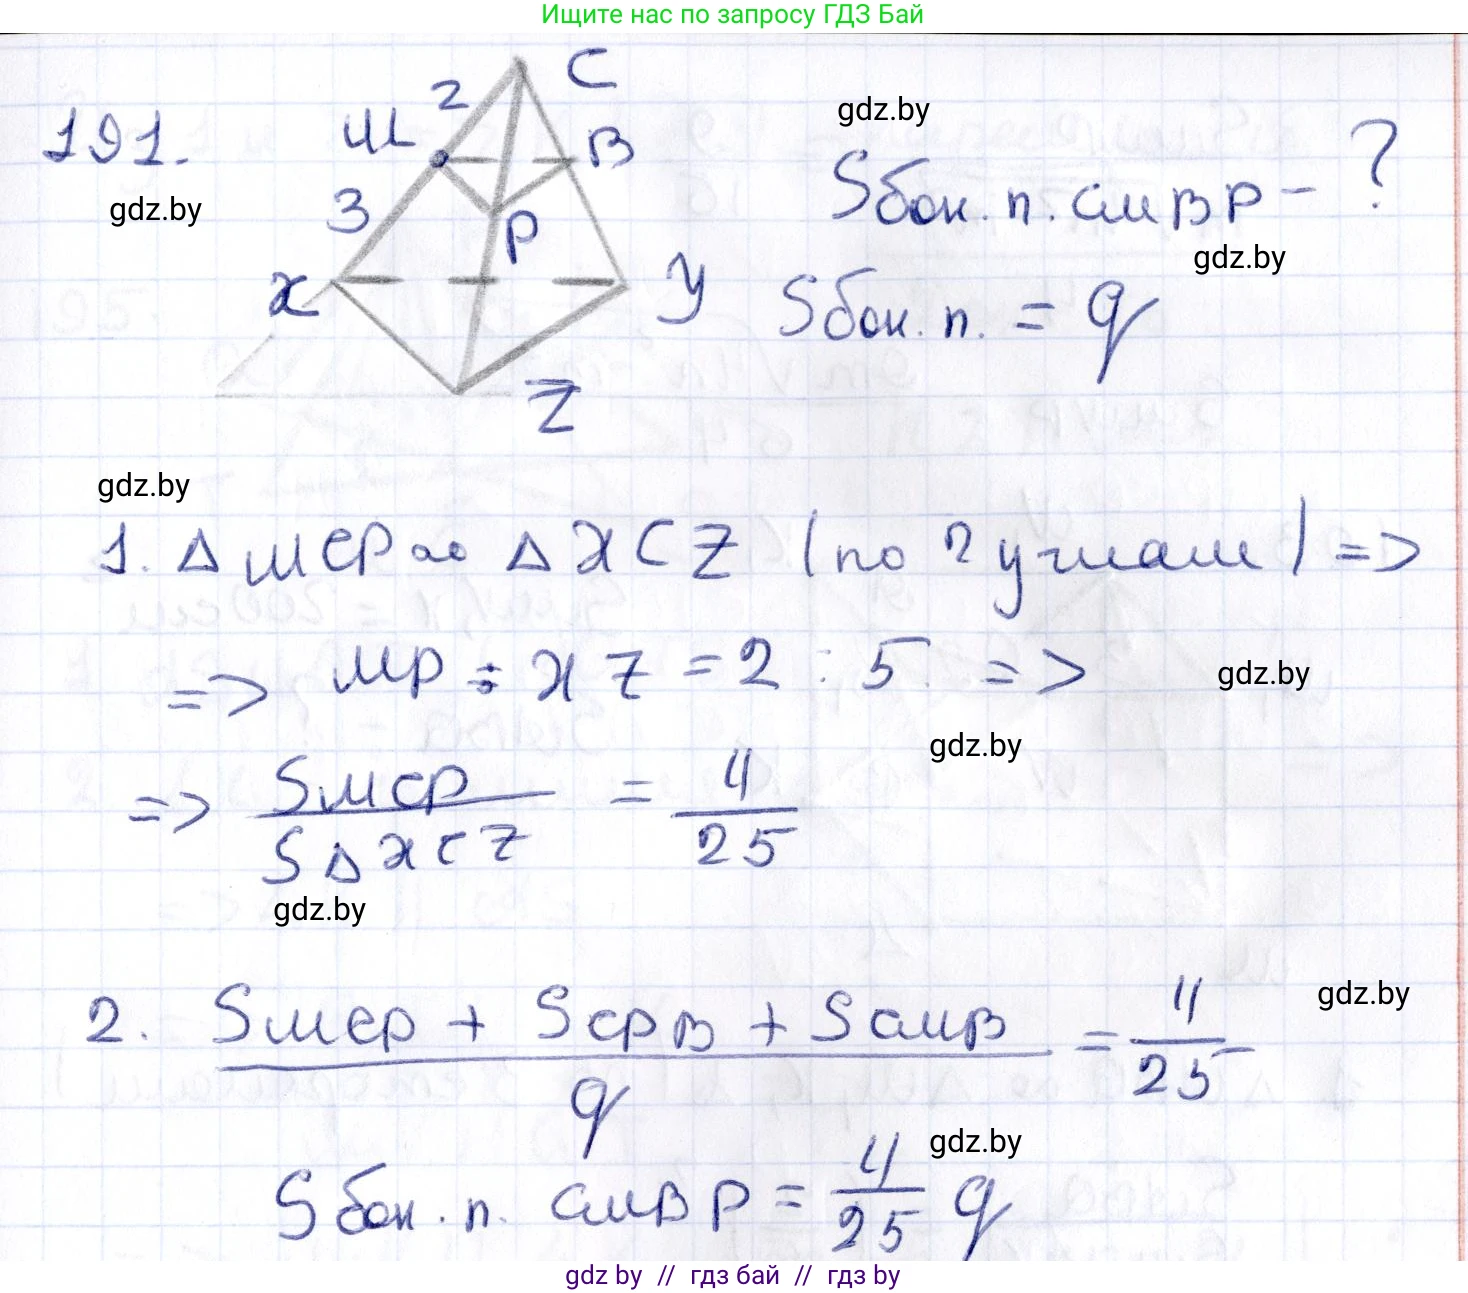 Ищите нас по запросу ГДЗ Бай
191.
gdz.by
C
2
M
B
3
P
X
Y
Z
gdz.by
Sбок. п. CMBP - ?
gdz.by
Sбок. п. = q
gdz.by
1. △ MCP ∾ △ XCZ (по 2 углам) =>
=> MP : XZ = 2 : 5 =>
gdz.by
gdz.by
=> SMCP / S△XCZ = 4/25
gdz.by
gdz.by
2. SMCP + SCPB + SCMB / q = 4/25
gdz.by
Sбок. п. CMBP = 4/25 q
gdz by // гдз бай // гдз by